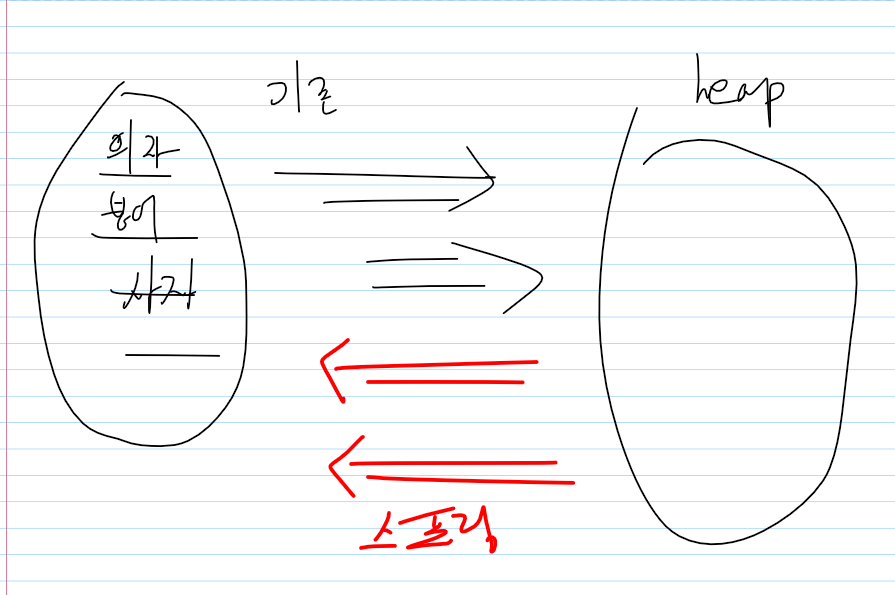 기존
heap
의자
붕어
사자
스프링